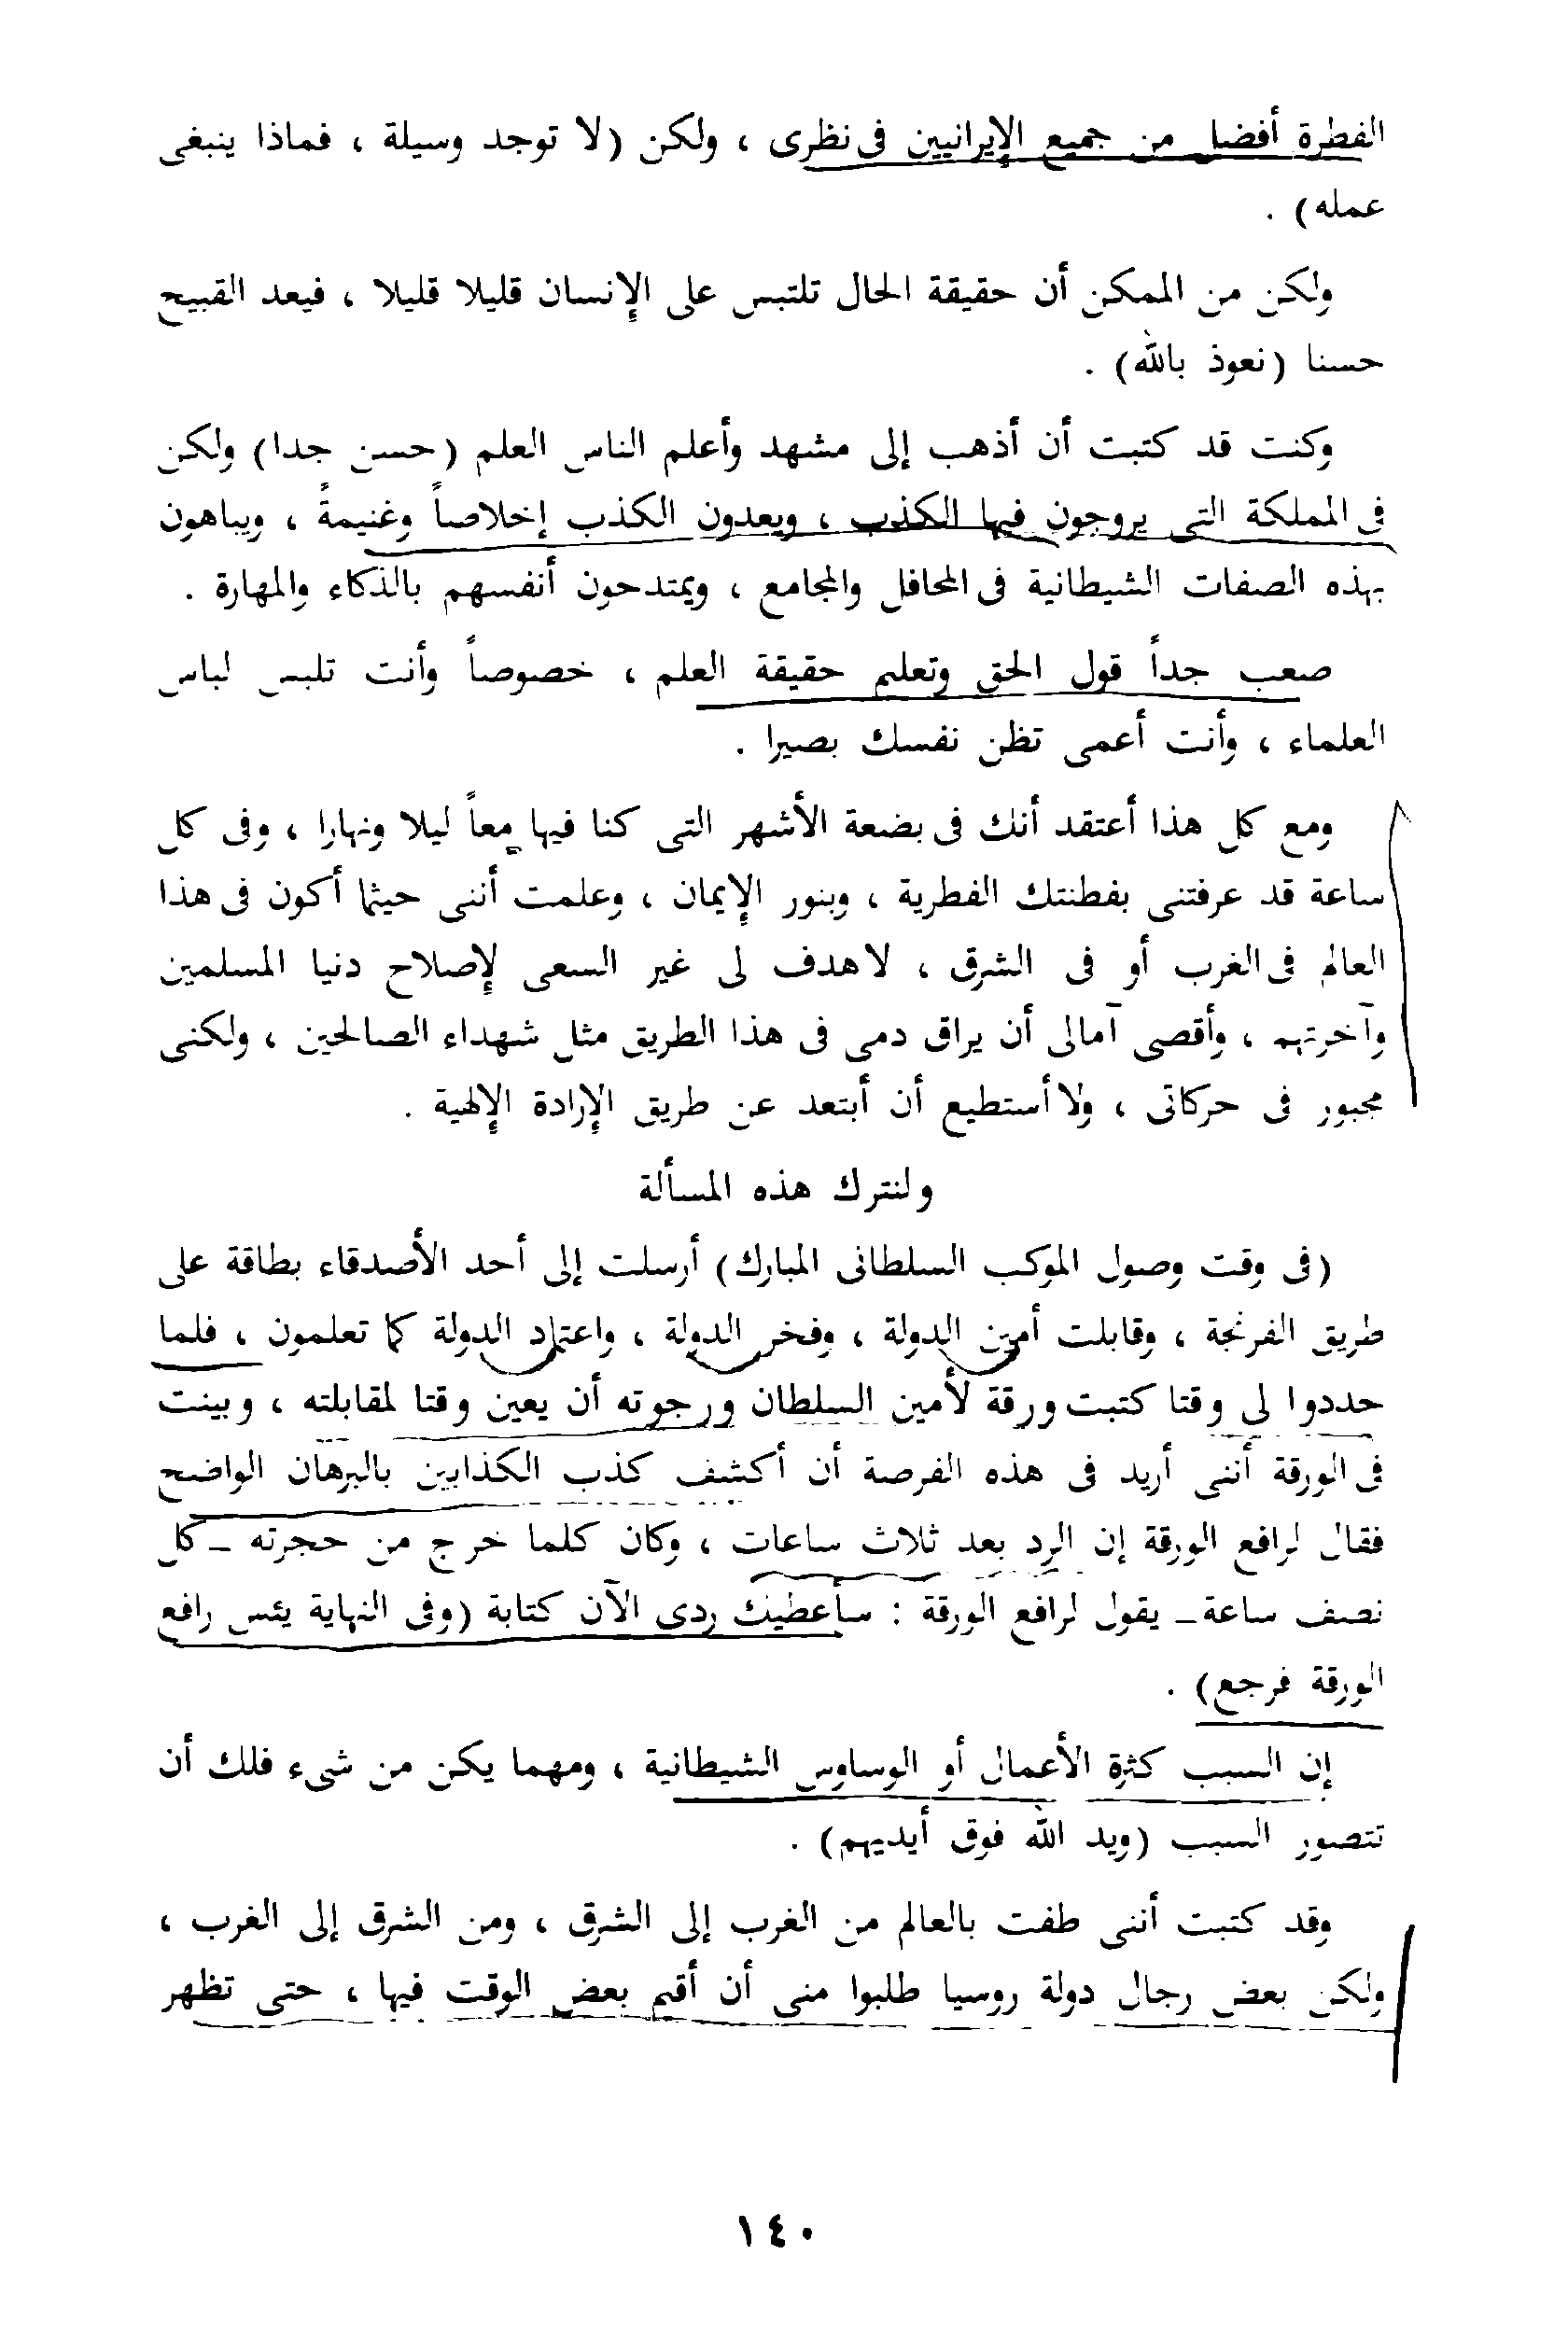 الفطرة أفضل من جميع الإيرانيين فى نظرى ، ولكن (لا توجد وسيلة ، فماذا ينبغى
عمله) .
ولكن من الممكن أن حقيقة الحال تلتبس على الإنسان قليلا قليلا ، فيعد القبيح
حسنا (نعوذ بالله) .
وكنت قد كتبت أن أذهب إلى مشهد وأعلم الناس العلم (حسن جدا) ولكن
فى المملكة التى يروجون فيها الكذب ، ويعدون الكذب إخلاصاً وغنيمةً ، ويباهون
بهذه الصفات الشيطانية فى المحافل والمجامع ، ويمتدحون أنفسهم بالذكاء والمهارة .
صعب جداً قول الحق وتعليم حقيقة العلم ، خصوصاً وأنت تلبس لباس
العلماء ، وأنت أعمى تظن نفسك بصيرا .
ومع كل هذا أعتقد أنك فى بضعة الأشهر التى كنا فيها معاً ليلا ونهارا ، وفى كل
ساعة قد عرفتنى بفطنتك الفطرية ، وبنور الإيمان ، وعلمت أننى حيثما أكون فى هذا
العالم فى الغرب أو فى الشرق ، لا هدف لى غير السعى لإصلاح دنيا المسلمين
وآخرتهم ، وأقصى آمالى أن يراق دمى فى هذا الطريق مثل شهداء الصالحين ، ولكنى
مجبور فى حركاتى ، ولا أستطيع أن أبتعد عن طريق الإرادة الإلهية .
ولنترك هذه المسألة
(فى وقت وصول الموكب السلطانى المبارك) أرسلت إلى أحد الأصدقاء بطاقة على
طريق الفرنجة ، وقابلت أمين الدولة ، وفخر الدولة ، واعتماد الدولة كما تعلمون ، فلما
حددوا لى وقتا كتبت ورقة لأمين السلطان ورجوته أن يعين وقتا لمقابلته ، وبينت
فى الورقة أننى أريد فى هذه الفرصة أن أكشف كذب الكذابين بالبرهان الواضح
فقال لرافع الورقة إن الرد بعد ثلاث ساعات ، وكان كلما خرج من حجرته ــ كل
نصف ساعة ــ يقول لرافع الورقة : سأعطيك ردى الآن كتابة (وفى النهاية يئس رافع
الورقة فرجع) .
إن السبب كثرة الأعمال أو الوساوس الشيطانية ، ومهما يكن من شىء فلك أن
تتصور السبب (ويد الله فوق أيديهم) .
وقد كتبت أننى طفت بالعالم من الغرب إلى الشرق ، ومن الشرق إلى الغرب ،
ولكن بعض رجال دولة روسيا طلبوا منى أن أقيم بعض الوقت فيها ، حتى تظهر
١٤٠